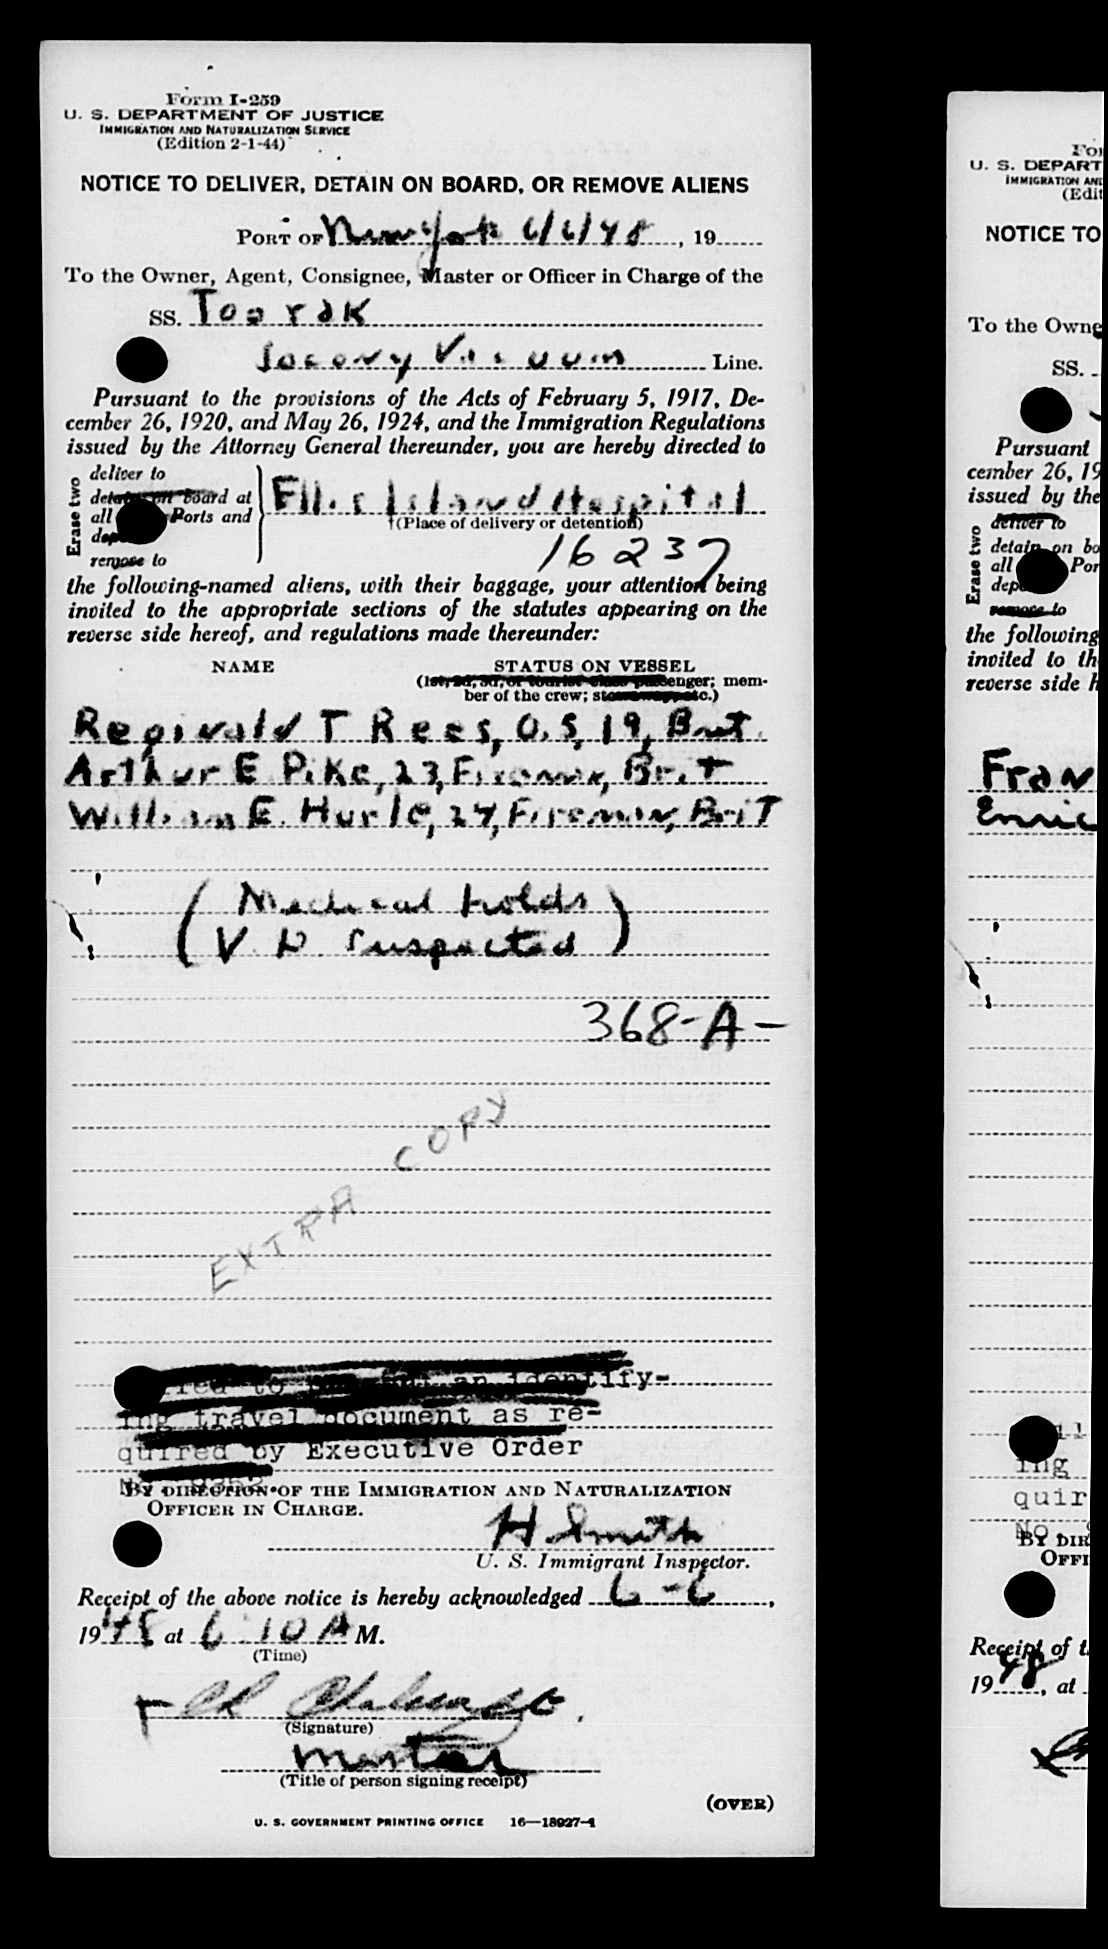 Form I-259
U. S. DEPARTMENT OF JUSTICE
IMMIGRATION AND NATURALIZATION SERVICE
(Edition 2-1-44)
NOTICE TO DELIVER, DETAIN ON BOARD, OR REMOVE ALIENS
PORT OF New York 6/6/48, 19
To the Owner, Agent, Consignee, Master or Officer in Charge of the
SS. Toorak
Socony Vacuum Line.
Pursuant to the provisions of the Acts of February 5, 1917, De-
cember 26, 1920, and May 26, 1924, and the Immigration Regulations
issued by the Attorney General thereunder, you are hereby directed to
Erase two
deliver to
detain on board at
all Ports and
remove to
Ellis Island Hospital
†(Place of delivery or detention)
16237
the following-named aliens, with their baggage, your attention being
invited to the appropriate sections of the statutes appearing on the
reverse side hereof, and regulations made thereunder:
NAME
STATUS ON VESSEL
(1st, 2d, 3d, or tourist class passenger; mem-
ber of the crew; stowaway, etc.)
Reginald T Rees, O.S, 19, Brit.
Arthur E Pike, 23, Fireman, Brit
William E. Hurle, 24, Fireman, Brit
(Medical holds
V. D. suspected)
368-A-
EXTRA COPY
to an identify-
ing travel document as re-
quired by Executive Order
BY DIRECTION OF THE IMMIGRATION AND NATURALIZATION
OFFICER IN CHARGE.
H Smith
U. S. Immigrant Inspector.
Receipt of the above notice is hereby acknowledged 6-6,
1948 at 6:10 A M.
(Time)
(Signature)
Master
(Title of person signing receipt)
(OVER)
U. S. GOVERNMENT PRINTING OFFICE 16—18927-1
U. S. DEPART
IMMIGRATION AND
(Edit
NOTICE TO
To the Owne
SS.
Pursuant
cember 26, 19
issued by the
Erase two
deliver to
detain on bo
all Por
remove to
the following
invited to th
reverse side h
Fran
Enric
ing
quir
No.
BY DIR
OFFI
Receipt of t
1948, at